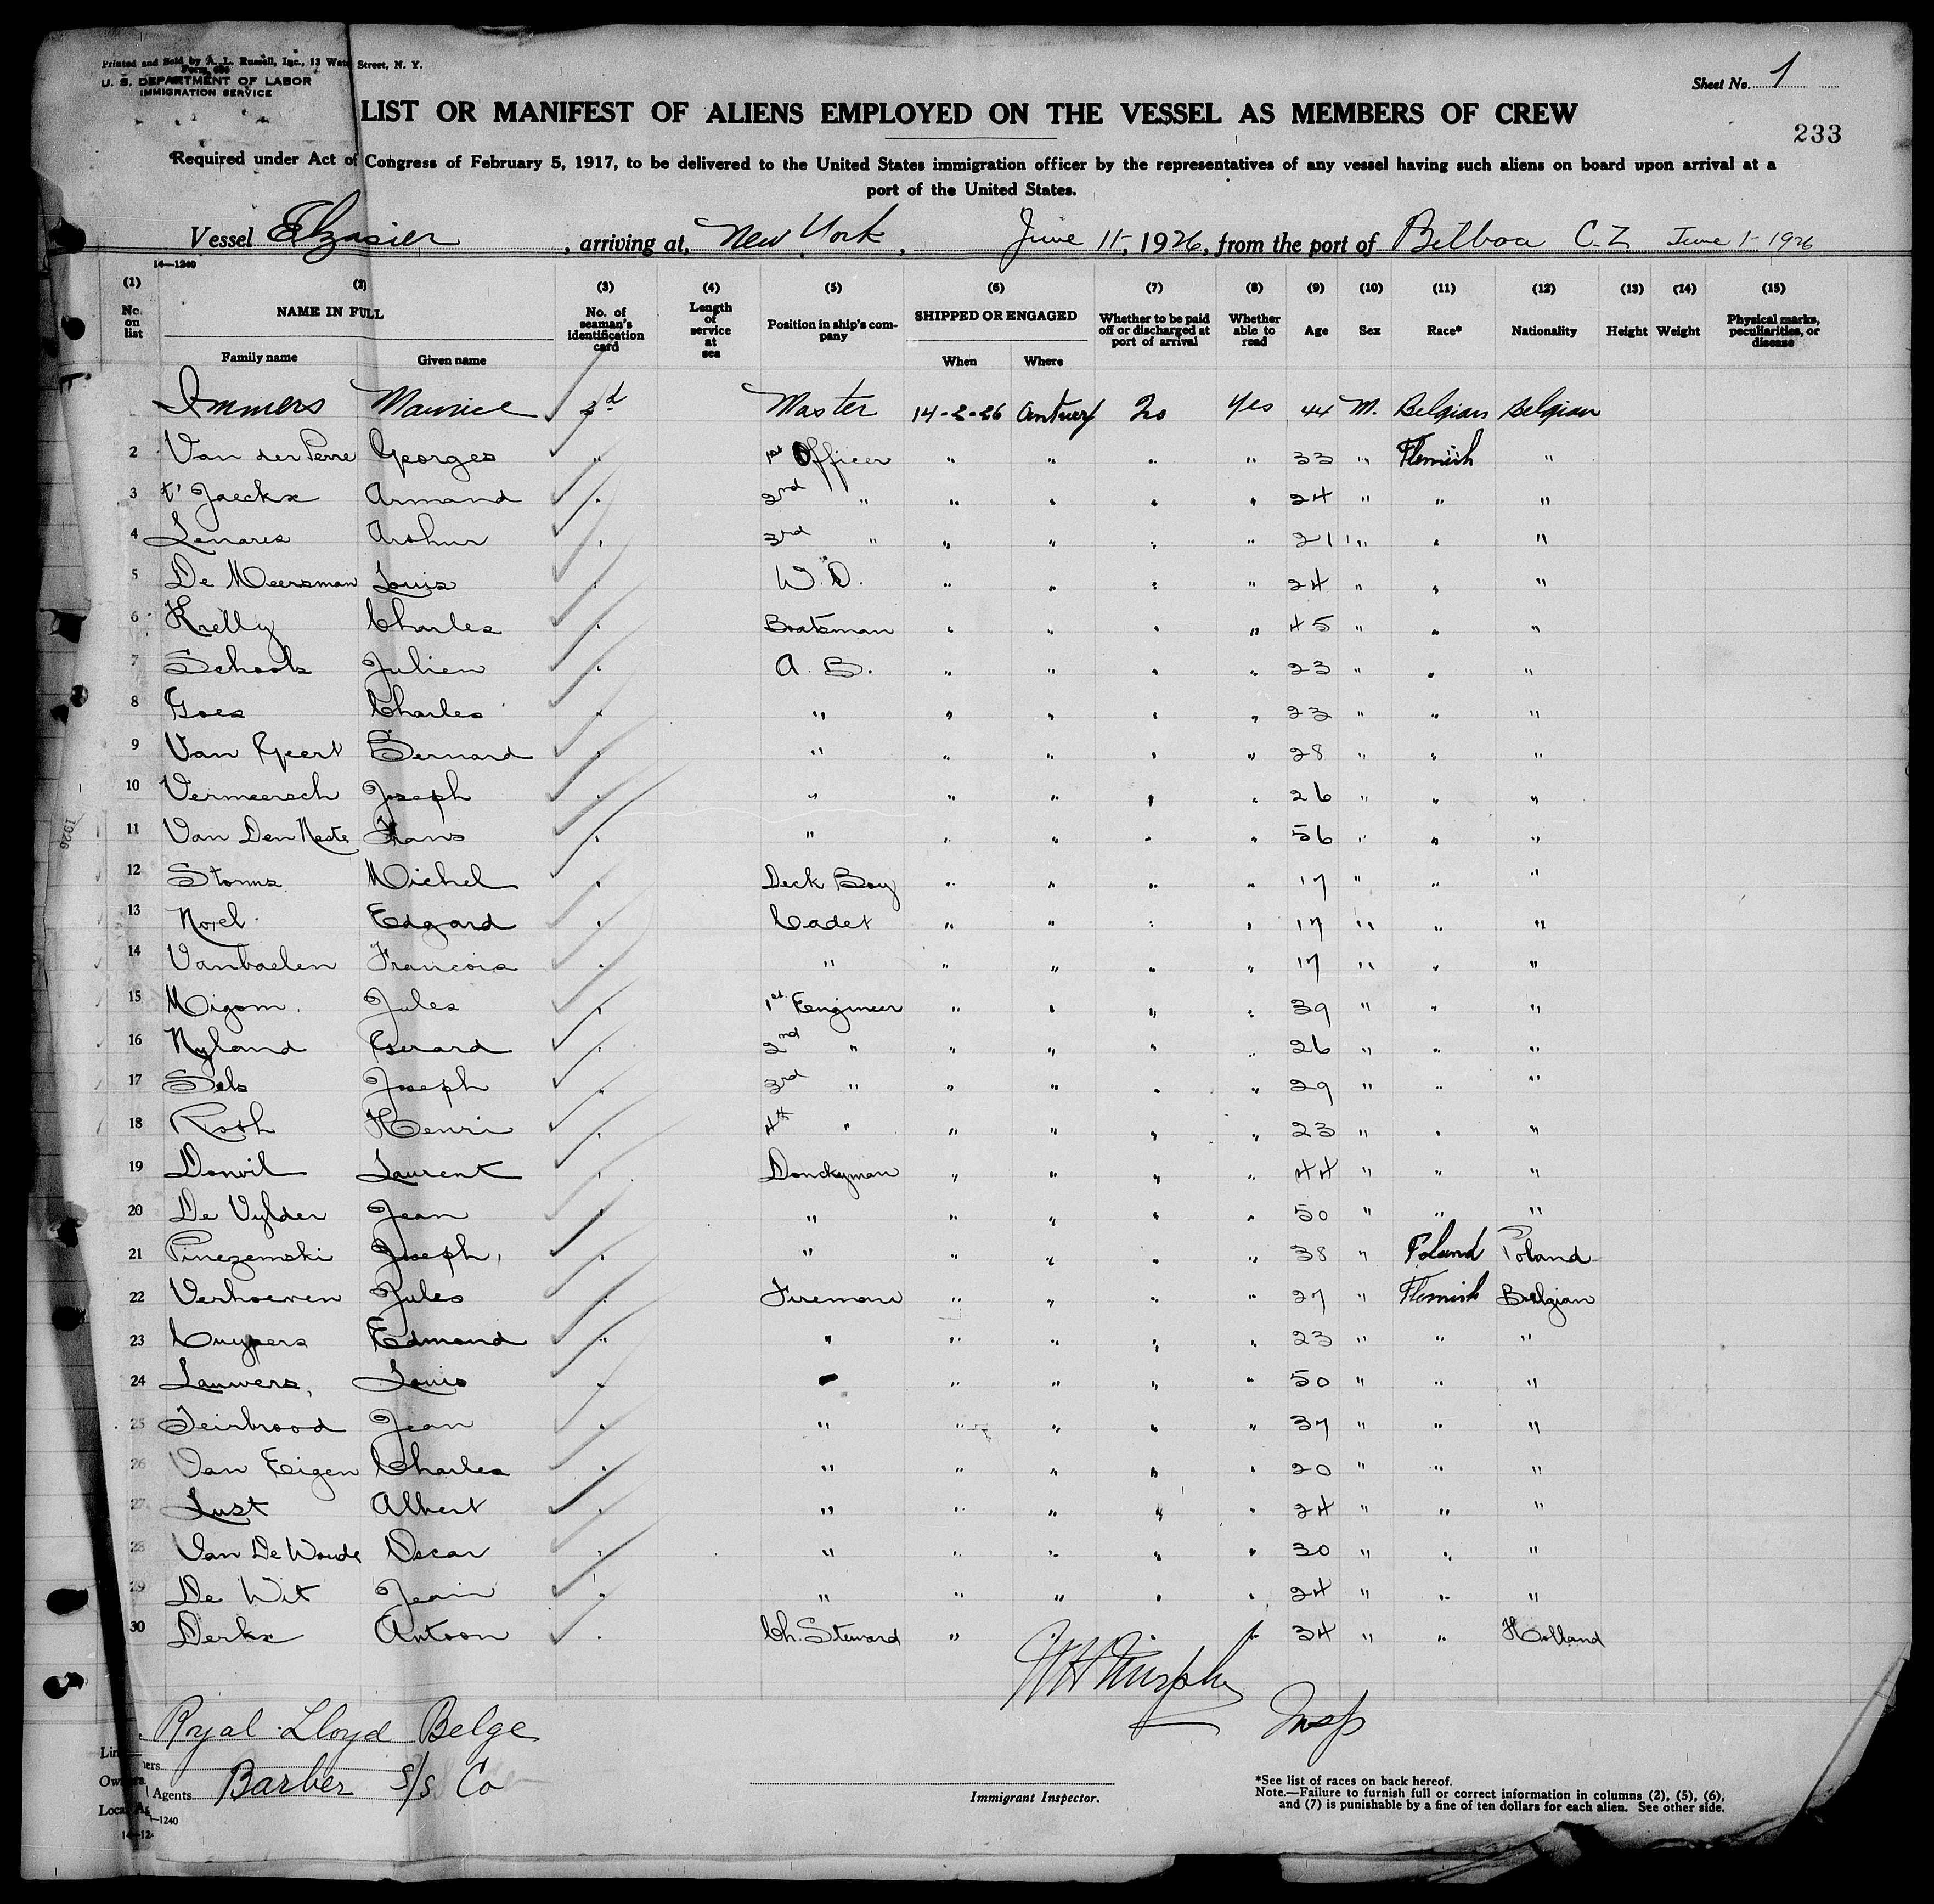 Printed and Sold by A. L. Russell, Inc., 13 Water Street, N. Y.
Form 680
U. S. DEPARTMENT OF LABOR
IMMIGRATION SERVICE
Sheet No. 1
LIST OR MANIFEST OF ALIENS EMPLOYED ON THE VESSEL AS MEMBERS OF CREW
233
Required under Act of Congress of February 5, 1917, to be delivered to the United States immigration officer by the representatives of any vessel having such aliens on board upon arrival at a
port of the United States.
Vessel Elzasier, arriving at, New York, June 11, 1926, from the port of Balboa C. Z. June 1 - 1926
14—1240
(1) (2) (3) (4) (5) (6) (7) (8) (9) (10) (11) (12) (13) (14) (15)
No. on list NAME IN FULL Family name Given name No. of seaman's identification card Length of service at sea Position in ship's company SHIPPED OR ENGAGED When Where Whether to be paid off or discharged at port of arrival Whether able to read Age Sex Race* Nationality Height Weight Physical marks, peculiarities, or disease
Immers Maurice Master 14-2-26 Antwerp No Yes 44 M. Belgian Belgian
2 Van der Perre Georges " 1st Officer " " " " 33 " Flemish "
3 t' Jaeckx Armand " 2nd " " " " " 24 " " "
4 Lenares Arthur " 3rd " " " " " 21 " " "
5 De Meersman Louis " W. O. " " " " 24 " " "
6 Krelly Charles " Boatsman " " " " 45 " " "
7 Schools Julien " A. B. " " " " 23 " " "
8 Goes Charles " " " " " " 23 " " "
9 Van Geert Bernard " " " " " " 28 " " "
10 Vermeersch Joseph " " " " " " 26 " " "
11 Van Den Neste Frans " " " " " " 56 " " "
12 Storms Michel " Deck Boy " " " " 17 " " "
13 Norel Edgard " Cadet " " " " 17 " " "
14 Vanbaelen Francois " " " " " " 17 " " "
15 Migom. Jules " 1st Engineer " " " " 39 " " "
16 Nyland Gerard " 2nd " " " " " 26 " " "
17 Sels Joseph " 3rd " " " " " 29 " " "
18 Roth Henri " 4th " " " " " 23 " " "
19 Donvil Laurent " Donckyman " " " " 44 " " "
20 De Vylder Jean " " " " " " 50 " " "
21 Pinezemski Joseph, " " " " " " 38 " Poland Poland
22 Verhoeven Jules " Fireman " " " " 27 " Flemish Belgian
23 Cuypers Edmond " " " " " " 23 " " "
24 Lauwers, Louis " " " " " " 50 " " "
25 Teirbrood Jean " " " " " " 37 " " "
26 Van Eigen Charles " " " " " " 20 " " "
27 Lust Albert " " " " " " 24 " " "
28 Van De Woude Oscar " " " " " " 30 " " "
29 De Wit Jean " " " " " " 24 " " "
30 Derkx Antoon " Ch. Steward " " " " 34 " " Holland
W H Murphy
Insp
Royal Lloyd Belge
Agents Barber S/S Co
Immigrant Inspector.
*See list of races on back hereof.
Note.—Failure to furnish full or correct information in columns (2), (5), (6),
and (7) is punishable by a fine of ten dollars for each alien. See other side.